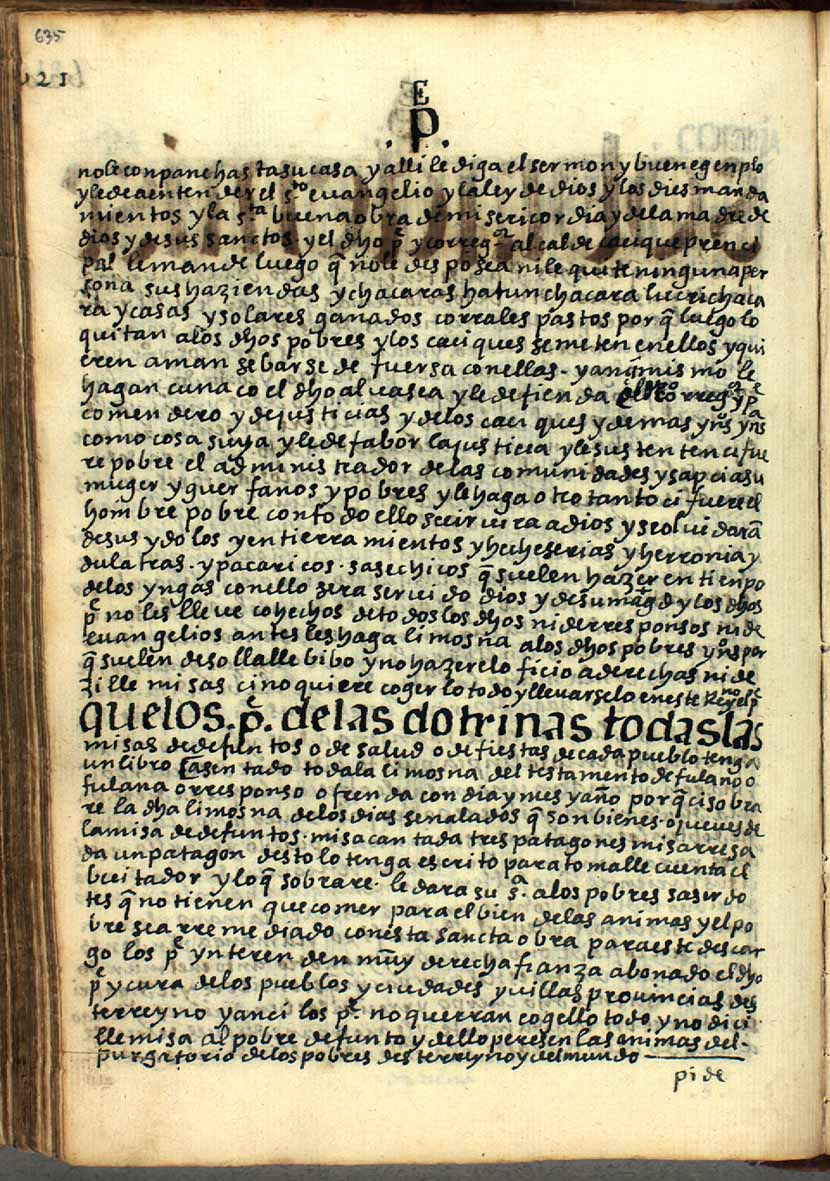 635
621
E
.p̱.
nole conpanehas ta su casa y alli le diga el sermon y buen egenplo
y le de a entender el s.to euangelio y la ley de dios y los dies manda
mientos y la s.ta buena obra de misericordia y de la madre de
dios y de sus sanctos. y el dho p.e y correg.or alcalde cacique prenci
pal le mande luego q̃ no le desposea ni le quite ninguna per
sona sus haziendas y chacaras hatun chacara lucri chaca
ra y casas y solares ganados corrales pastos por q̃ luego lo
quitan a los dhos pobres y los caciques se meten en ellos y qui
eren amanzebarse de fuersa con ellas. y anq̃mismo le
hagan cunaco el dho alcasea y le defienda el correg.or y p.e
comendero y de justicias y de los caciques y demas yn.os yn.as
como cosa suya y le de fabor la justicia y le sustenten ci fue
re pobre el administrador de las comunidades y sapcia su
muger y guerfanos y pobres y le haga otro tanto ci fuere el
hombre pobre con todo ello se ciruira a dios y se oluidara
de sus ydolos y entierramientos y hecheserias y herronia y
dulatras. y pacaricos. sasechicos q̃ suelen hazer en tienpo
de los yngas con ello zera seruido dios y de su mag.d y los dhos
p.e no les lleue cohechos de todos los dhos ni de rresponsos ni de
euangelios antes les haga limosna a los dhos pobres yn.os por
q̃ suelen desollalle bibo y no hazer el oficio a derechas ni de
zille misas cino quiere cogerlo todo y lleuarselo en este rreyno el p.e
que los .p.e de las dotrinas todas las
misas de defuntos o de salud o de fiestas de cada pueblo tenga
un libro asentado toda la limosna del testamento de fulano o
fulana o rresponso ofrenda con dia y mes y año por q̃ ci sobra
re la dha limosna de los dias señalados q̃ son bienes. o jueues de
la misa de defuntos. misa cantada tres patagones misa rresa
da un patagon desto lo tenga escrito para tomalle cuenta el
bicitador y lo q̃ sobrare. le dara su s.a a los pobres saserdo
tes q̃ no tienen que comer para el bien de las animas y el po
bre sea rremediado con esta sancta obra para este descar
go los p.e ynteren den muy derecha fianza abonado el dho
p.e y cura de los pueblos y ciudades y uillas prouincias des
te rreyno y anci los p.e no querran cogello todo y no dici
lle misa al pobre defunto y dello peresen las animas del
purgatorio de los pobres deste rreyno y del mundo
pide